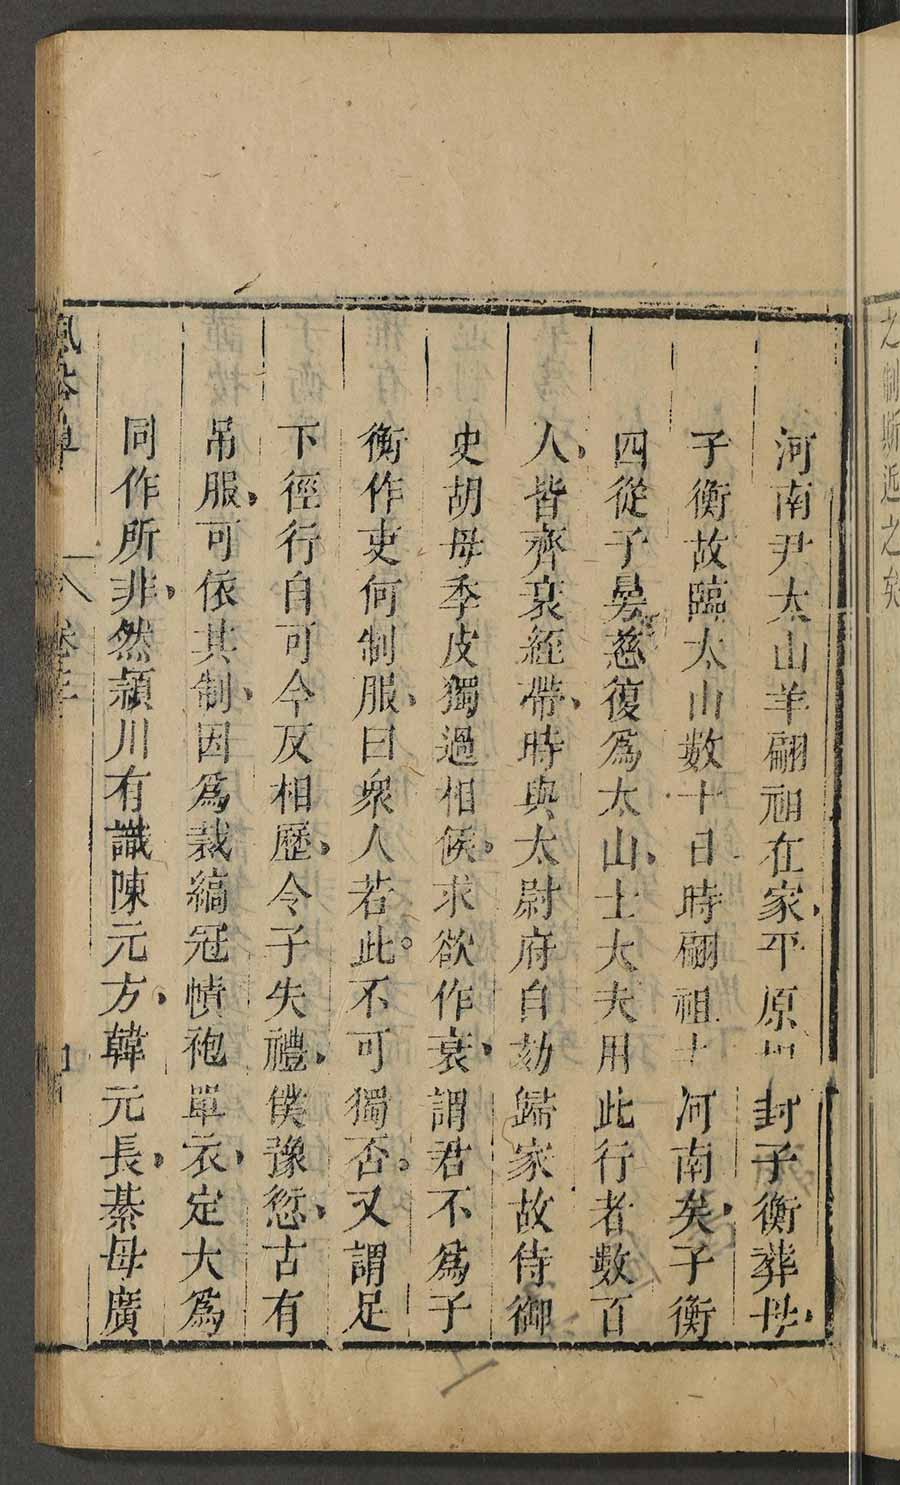 之制斯近之矣
河南尹太山羊翩祖在家平原封子衡葬母
子衡故臨太山數十日時翩祖去河南矣子衡
四從子曼慈復為太山士大夫用此行者數百
人皆齊衰絰帶時與太尉府自劾歸家故侍御
史胡母季皮獨過相候求欲作衰謂君不為子
衡作吏何制服曰衆人若此不可獨否又謂足
下徑行自可今反相歷令子失禮僕豫愆古有
吊服可依其制因為裁縞冠幘袍單衣定大為
同作所非然頴川有識陳元方韓元長綦母廣
風俗通 卷三